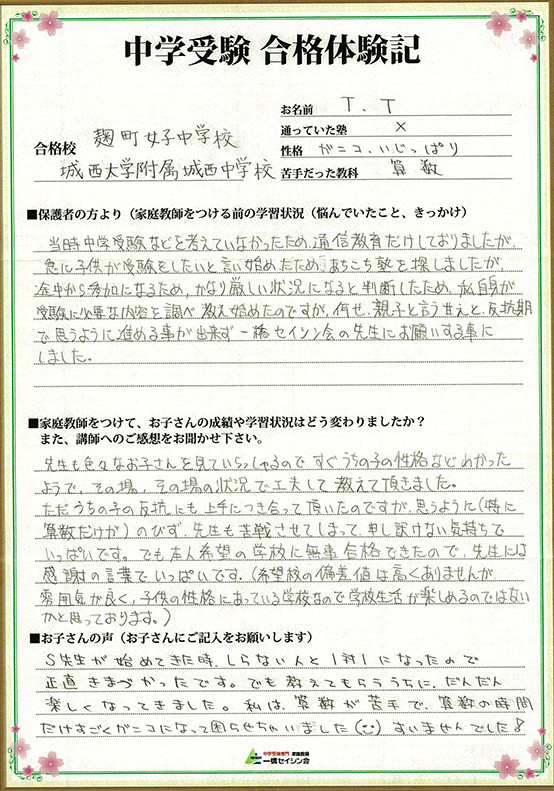 中学受験 合格体験記
お名前 T.T
通っていた塾 ×
性格 ガンコ、いじっぱり
苦手だった教科 算数
合格校 麹町女子中学校
城西大学附属城西中学校
■保護者の方より（家庭教師をつける前の学習状況（悩んでいたこと、きっかけ）
当時中学受験などを考えていなかったため、通信教育だけしておりましたが、
急に子供が受験をしたいと言い始めたため、あちこち塾を探しましたが
途中から参加になるため、かなり厳しい状況になると判断したため、私自身が
受験に必要な内容を調べ教え始めたのですが、何せ、親子と言う甘えと、反抗期
で思うように進める事が出来ず一橋セイシン会の先生にお願いする事に
しました。
■家庭教師をつけて、お子さんの成績や学習状況はどう変わりましたか？
また、講師へのご感想をお聞かせ下さい。
先生も色々なお子さんを見ていらっしゃるので すぐうちの子の性格などわかった
ようで、その場、その場の状況で工夫して教えて頂きました。
ただうちの子の反抗にも上手につき合って頂いたのですが、思うように（特に
算数だけが）のびず、先生も苦戦させてしまって、申し訳けない気持ちで
いっぱいです。でも本人希望の学校に無事合格できたので、先生には
感謝の言葉でいっぱいです。（希望校の偏差値は高くありませんが
雰囲気が良く、子供の性格にあっている学校なので学校生活が楽しめるのではない
かと思っております。）
■お子さんの声（お子さんにご記入をお願いします）
S先生が始めてきた時、しらない人と1対1になったので
正直きまづかったです。でも教えてもらううちに、だんだん
楽しくなってきました。私は、算数が苦手で、算数の時間
だけすごくガンコになって困らせちゃいました すいませんでした!
中学受験専門 家庭教師
一橋セイシン会